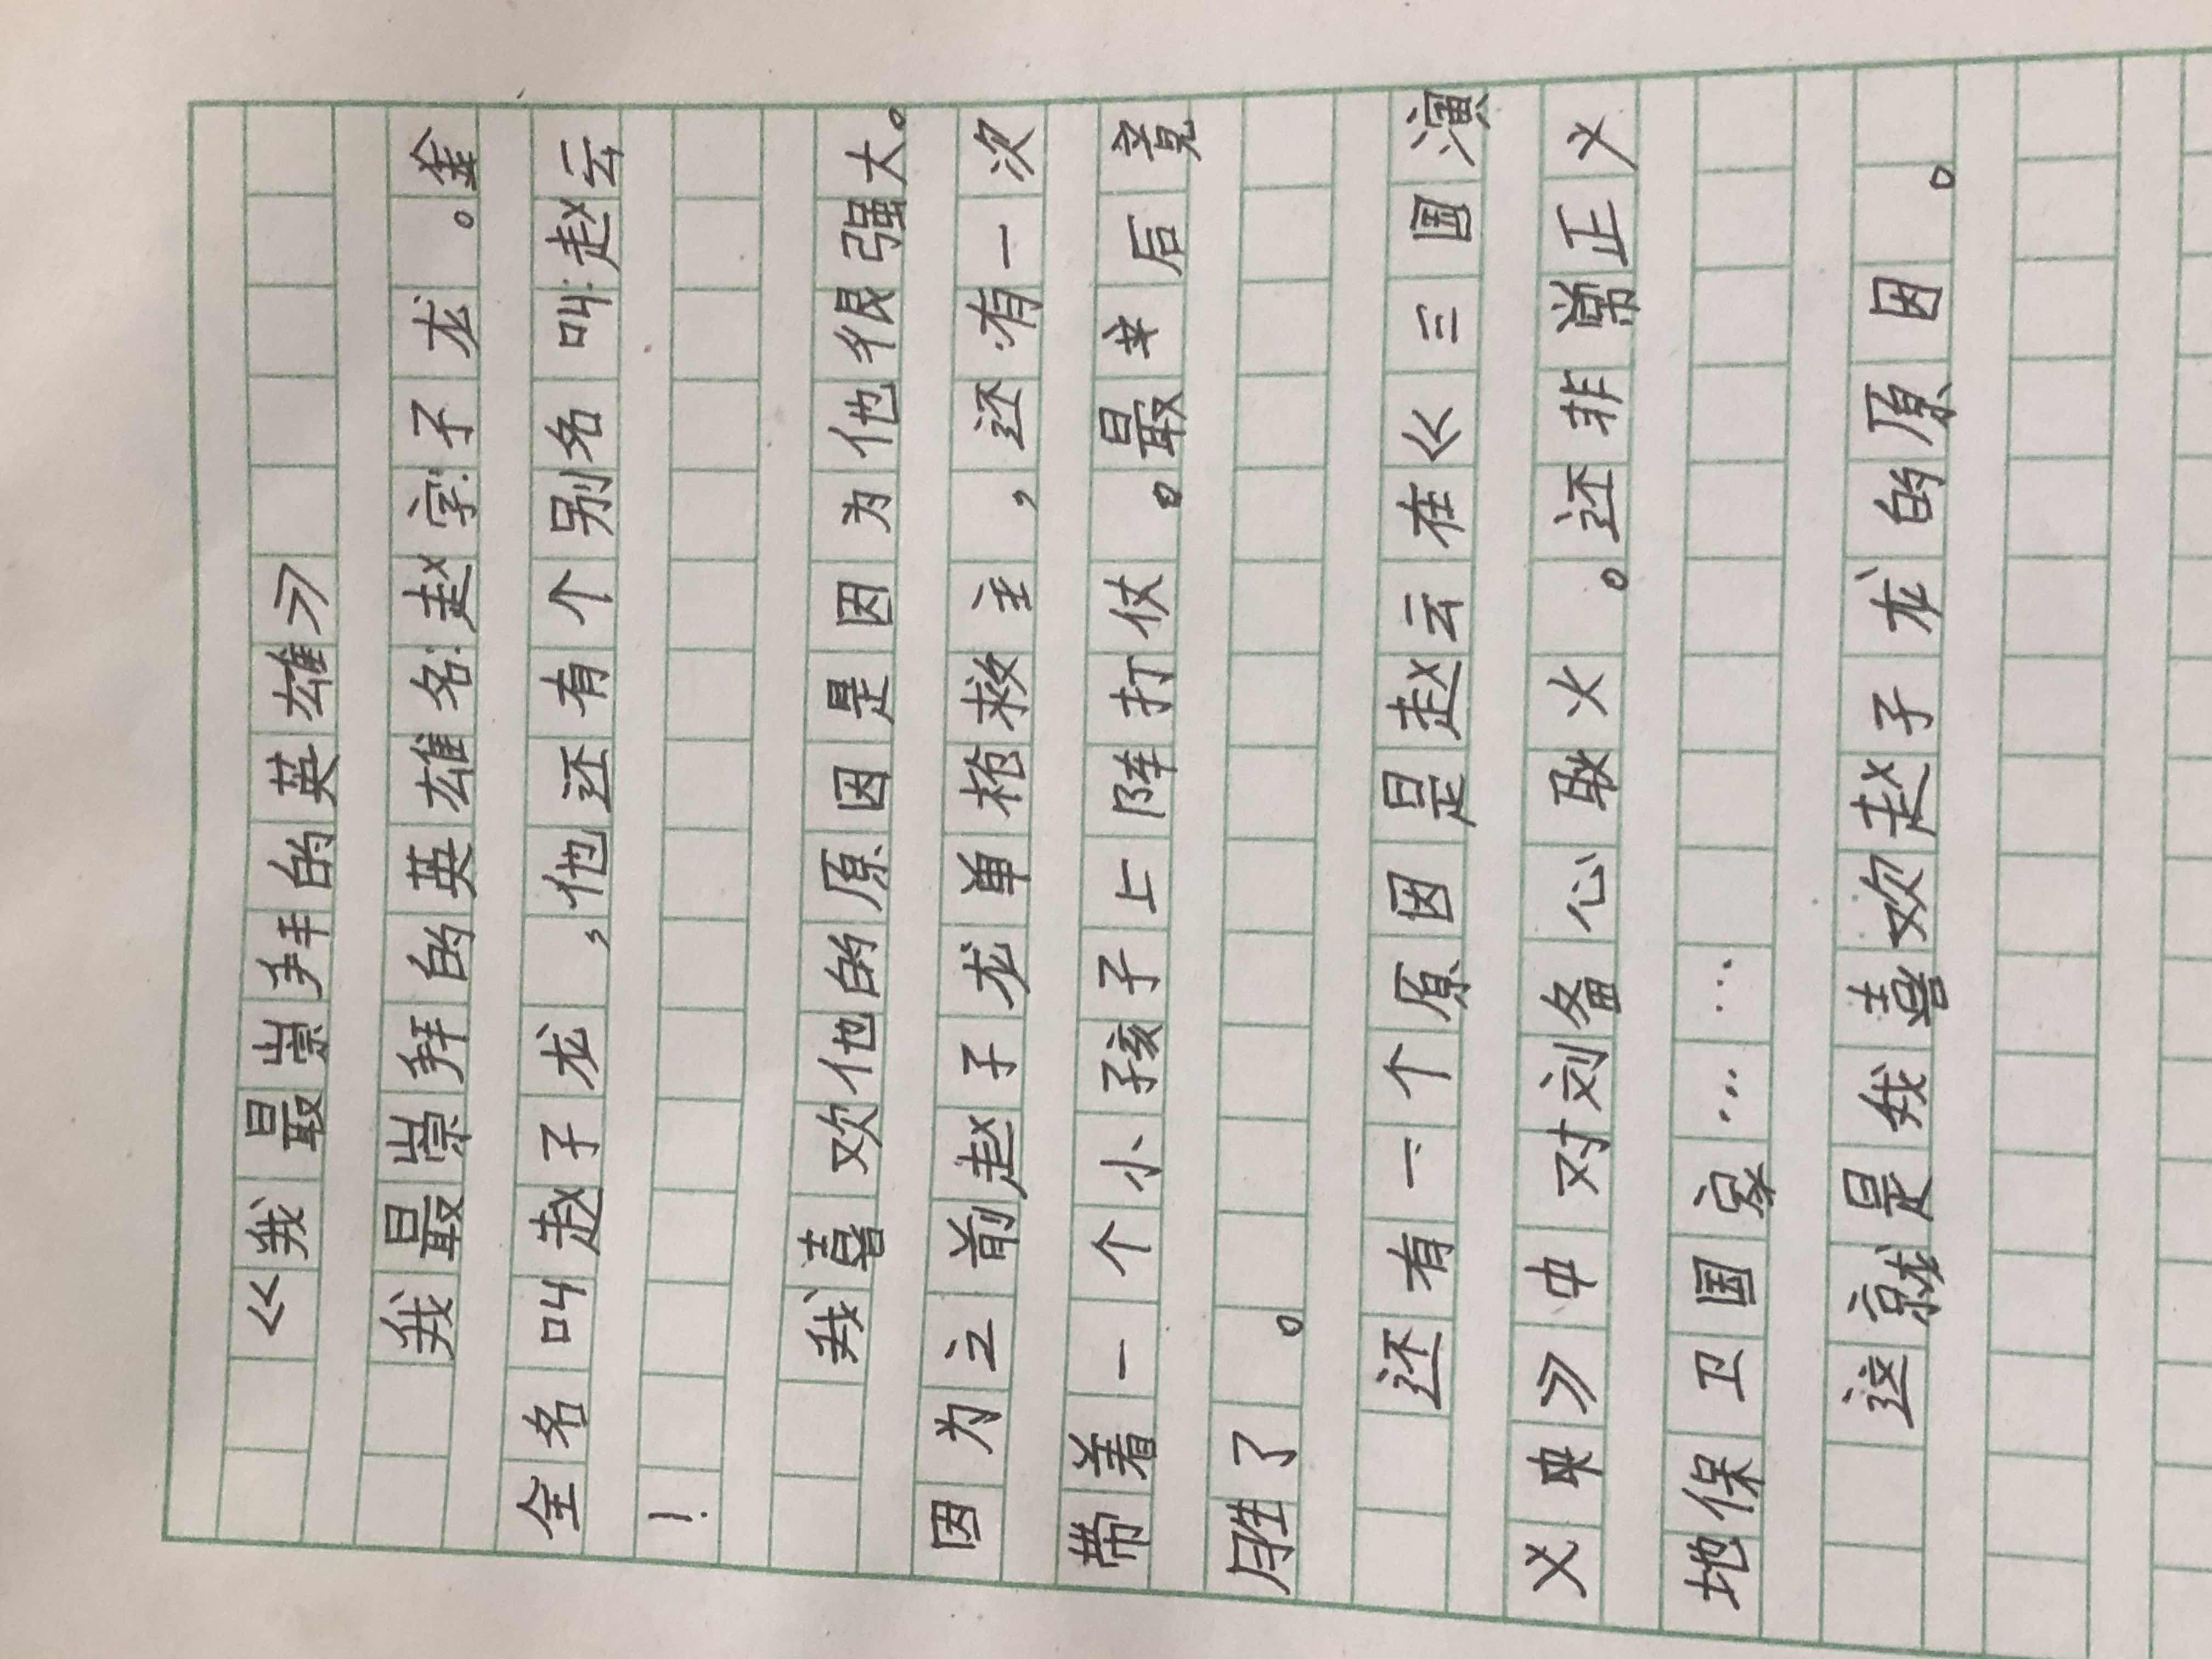 《我最崇拜的英雄》
我最崇拜的英雄名:赵字:子龙。金
全名叫赵子龙,他还有个别名叫:赵云
!
我喜欢他的原因是因为他很强大。
因为之前赵子龙单枪救主,还有一次
带着一个小孩子上阵打仗。最后竟
胜了。
还有一个原因是赵云在《三国演
义》中对刘备心耿火。还非常正义
地保卫国家……
这就是我喜欢赵子龙的原因。